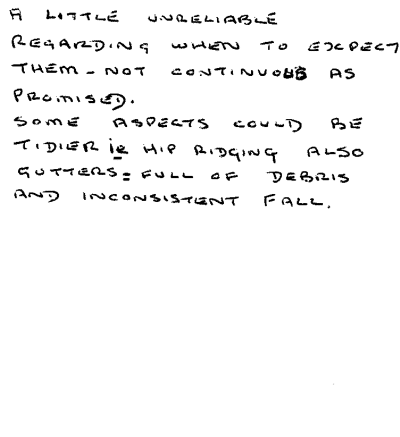 A LITTLE UNRELIABLE
REGARDING WHEN TO EXPECT
THEM - NOT CONTINUOUS AS
PROMISED.
SOME ASPECTS COULD BE
TIDIER ie HIP RIDGING ALSO
GUTTERS = FULL OF DEBRIS
AND INCONSISTENT FALL.